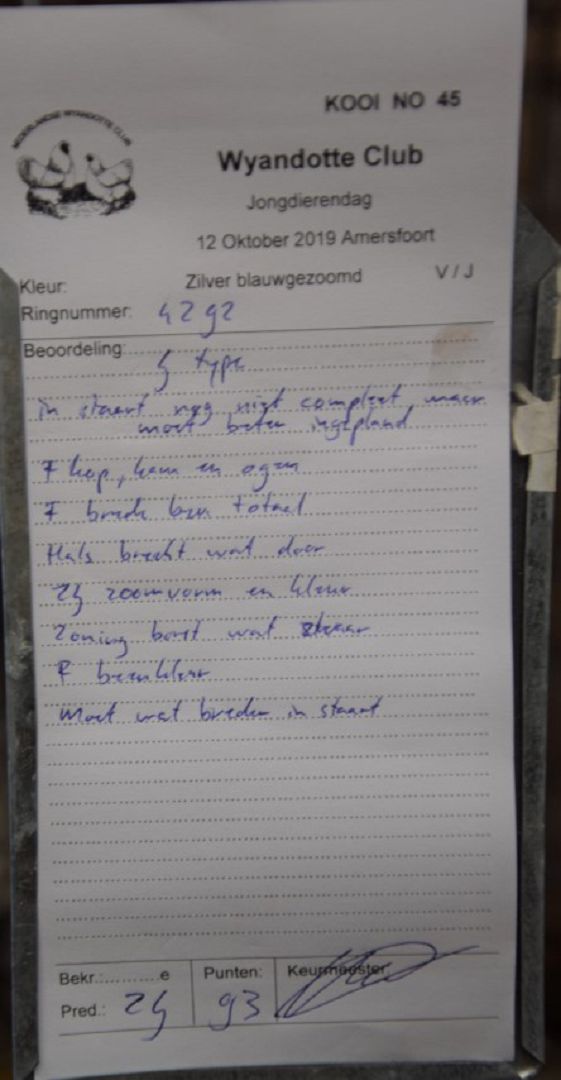 KOOI NO 45
NEDERLANDSE WYANDOTTE CLUB
Wyandotte Club
Jongdierendag
12 Oktober 2019 Amersfoort
Kleur: Zilver blauwgezoomd V / J
Ringnummer: 4292
Beoordeling:
G type
in staart nog niet compleet, maar
moet beter ingepland
F kop, kam en ogen
F brede totaal
Hals breekt wat door
ZG zoomvorm en kleur
Zoming borst wat zwaar
F beenkleur
Moet wat breder in staart
Bekr.:..........e Punten: Keurmeester:
Pred.: ZG 93